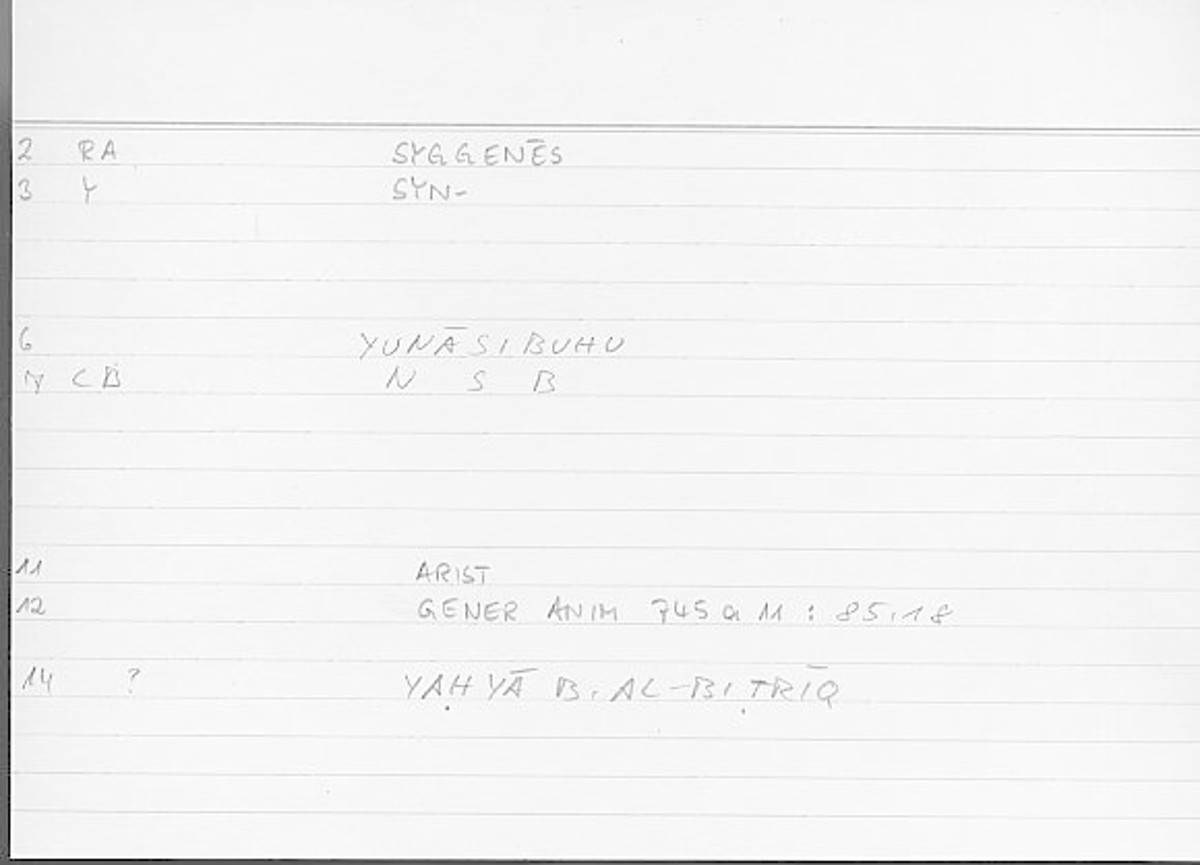 2 RA SYGGENĒS
3 Y SYN-
6 YUNĀSIBUHU
CB N S B
11 ARIST
12 GENER ANIM 745 a 11 : 85,18
14 ? YAḤYĀ B. AL-BIṬRĪQ